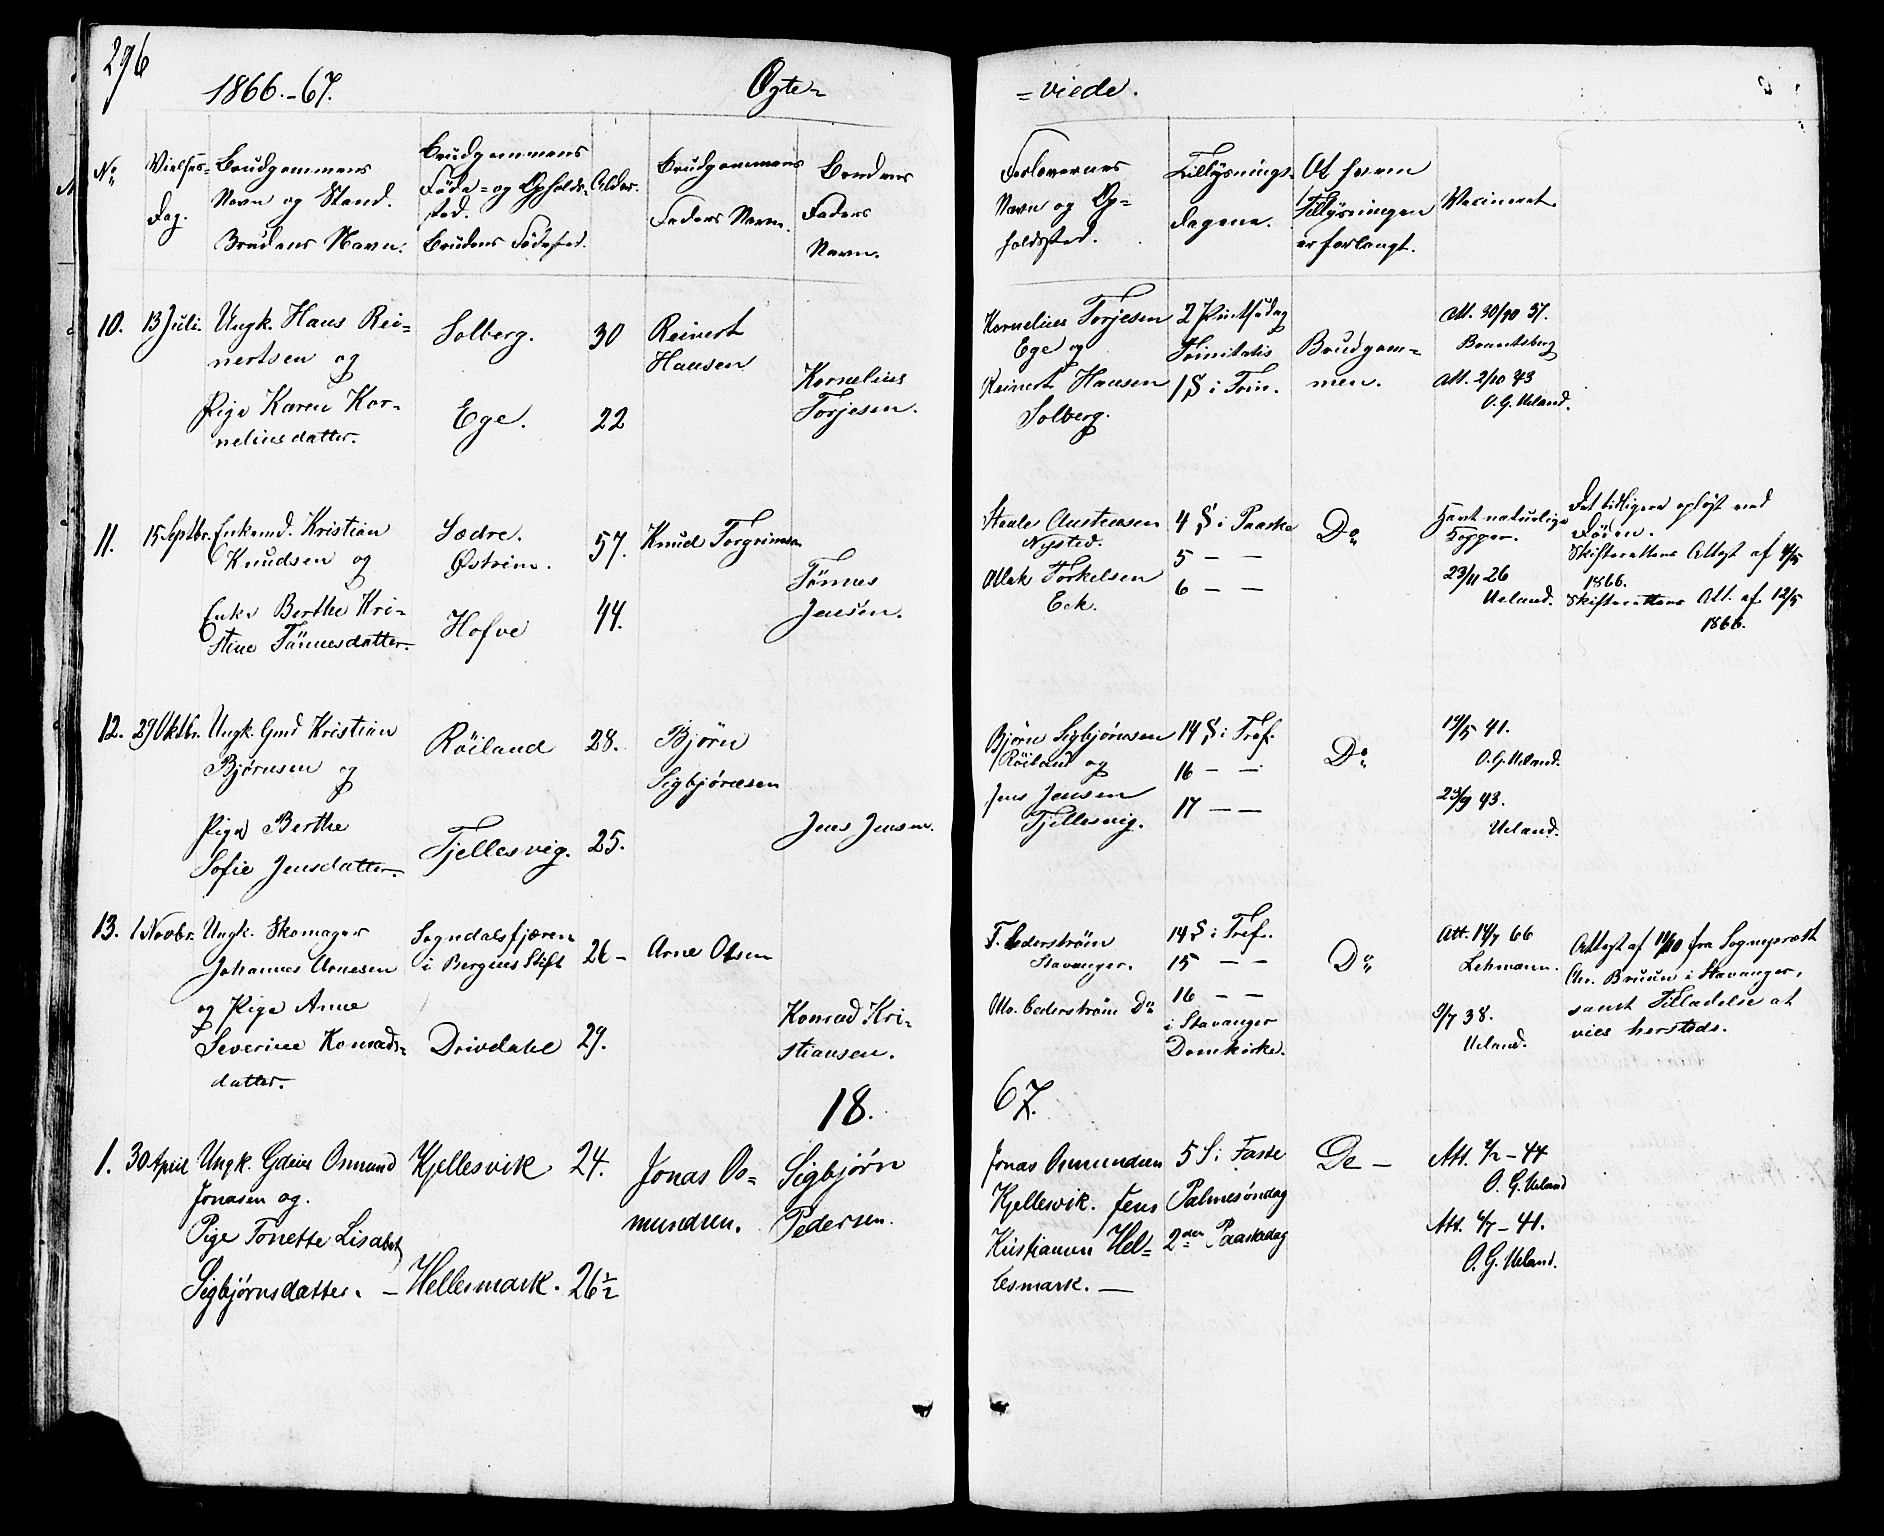 296
1866.-67.
Ægte-
=viede.
No
Vielses-
Dag.
Brudgommens
Navn og Stand.
Brudens Navn.
Brudgommens
Føde- og Opholds-
sted.
Brudens Fødested.
Alder.
Brudgommens
Faders Navn.
Brudens
Faders
Navn.
Forlovernes
Navn og Op=
holdssted.
Tillysnings-
dagene.
Af hvem
Tillysningen
er forlangt.
Vaccineret.
10.
13 Juli.
Ungk. Hans Rei=
nertsen og
Pige Karen Kor-
neliusdatter.
Solberg.
Ege.
30
22
Reinert
Hansen
Kornelius
Torjesen.
Kornelius Torjesen
Ege og
Reinert Hansen
Solberg.
2 Pintsedag
Trinitatis
1 S i Trin.
Brudgom=
men.
Att. 30/10 37.
Att. 2/10 43
O. G. Ueland.
11.
15 Septbr.
Enkemd. Kristian
Knudsen og
Enke Berthe Kri-
stine Tönnesdatter.
Sædre.
Østrim.
Hofve
57.
44.
Knud Torgrimsen
Tönnes
Jensen.
Staale Austensen
Nysted.
Atlak Torkelsen
Eek.
4 S i Paaske
5 — —
6 — —
Do
Havt naturlige
Kopper.
23/11 26
Ueland.
Det tidligere opløst ved
Döden.
Skifterettens Attest af 4/5
1866.
Skifterettens Att. af 12/5
1866.
12.
29 Oktbr.
Ungk. Gmd Kristian
Bjørnsen og
Pige Berthe
Sofie Jensdatter.
Röiland
Tjellesvig.
28.
25.
Bjørn
Sigbjørnsen
Jens Jensen.
Bjørn Sigbjørnsen
Röiland og
Jens Jensen
Tjellesvig.
14 S i Tref.
16 — —
17 — —
Do
19/5 41.
O. G. Ueland.
23/9 43.
Ueland.
13.
1 Novbr.
Ungk. Skomager
Johannes Arnesen
og Pige Anne
Severine Konrads=
datter.
Sogndalsfjæren
i Bergens Stift
Drivdahl
26-
29.
Arne Olsen
Konrad Kri-
stiansen.
T. Cederstrøm
Stavanger.
Ole. Cederstrøm Do
14 S i Tref.
15 — —
16 — —
i Stavanger
Domkirke.
Do
Att. 14/7 66
Lehmann.
9/7 38.
Ueland.
Attest af 14/10 fra Sogneprest
Chr. Bruun i Stavanger,
samt Tilladelse at
vies hersteds.
18.
67.
1.
30 April
Ungk. Gdeier Osmund
Jonasen og.
Pige Tonette Lisabet
Sigbjørnsdatter. —
Kjellesvik
Hellesmark.
24.
26 1/2
Jonas Os=
mundsen.
Sigbjørn
Pedersen.
Jonas Osmundsen
Kjellesvik. Jens
Kristiansen Hel=
lesmark. —
5 S i Faste
Palmesøndag
2den Paaskedag
Do —
Att. 4/2 - 44
O. G. Ueland
Att. 4/7 - 41.
O. G. Ueland.